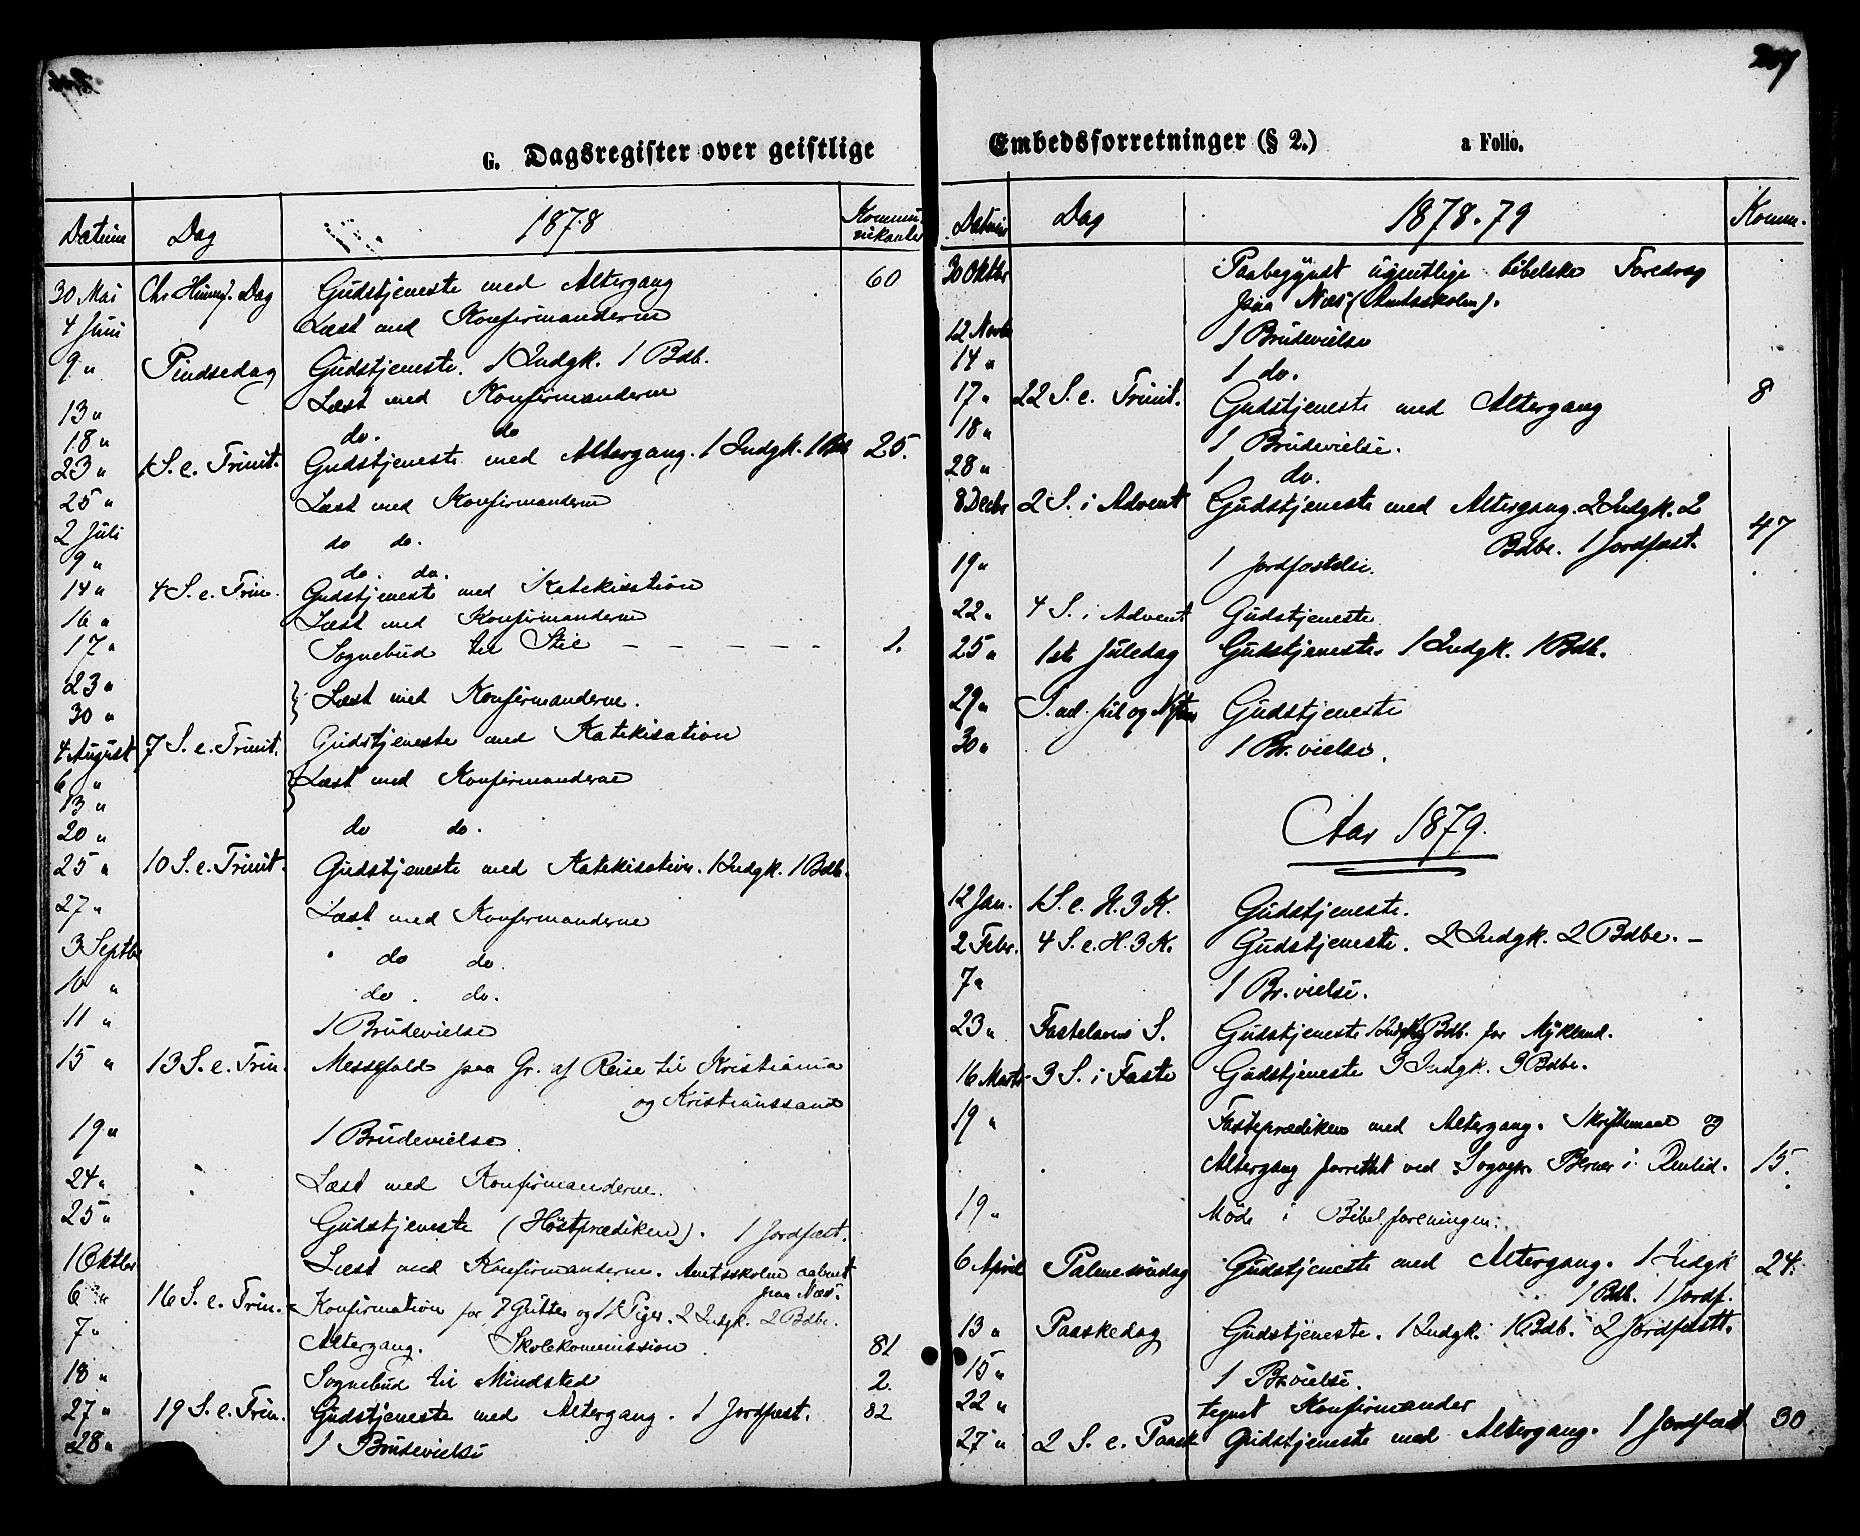 G. Dagsregister over geistlige
Datum Dag 1878 Kommunikanter
30 Mai Chr Himmf. Dag Gudstjeneste med Altergang 60
4 Juni Læst med Konfirmanderne
9 " Pindsedag Gudstjeneste. 1 Indgk. 1 Bdb.
13 " Læst med Konfirmanderne
18 " do. do
23 " 1 S. e. Trinit. Gudstjeneste med Altergang. 1 Indgk. 1 Bdb 25.
25 " Læst med Konfirmanderne
2 Juli do do.
9 " do. do.
14 " 4 S. e. Trin. Gudstjeneste med Katekisation
16 " Læst med Konfirmanderne
17 " Sognebud til Stie - - - - - 1.
23 " Læst med Konfirmanderne.
30 "
4 August 7 S. e. Trinit. Gudstjeneste med Katekisation
6 " Læst med Konfirmanderne
13 "
20 " do do.
25 " 10 S. e. Trinit. Gudstjeneste med Katekisation. 1 Indgk. 1 Bdb.
27 " Læst med Konfirmanderne
3 Septbr " do do.
10 " do. do.
11 " 1 Brudevielse
15 " 13 S. e. Trin. Messefald paa Gr. af Reise til Kristiania
og Kristianssand
19 " 1 Brudevielse.
24 " Læst med Konfirmanderne.
25 " Gudstjeneste (Høstprædiken). 1 Jordfæst.
1 Oktbr Læst med Konfirmanderne. Amtsskolen aabent
paa Næs.
6 " 16 S. e. Trin. Konfirmation for 7 Gutter og 11 Piger. 2 Indgk. 2 Bdbe.
7 " Altergang. Skolekommission. 81
18 " Sognebud til Mindsted 2.
27 " 19 S. e. Trin. Gudstjeneste med Altergang. 1 Jordfæst. 82
28 " 1 Brudevielse
207
Embedsforretninger (§ 2.) a Folio.
Datum Dag 1878-79 Komm.
30 Oktbr Paabegyndt ugentlige bibelske Foredrag
paa Næs (Amtsskolen).
12 Novbr 1 Brudevielse
14 " 1 do.
17 " 22 S. e. Trinit. Gudstjeneste med Altergang 8
18 " 1 Brudevielse.
28 " 1 do.
8 Decbr 2 S. i Advent Gudstjeneste med Altergang. 2 Indgk. 2
Bdbe. 1 Jordfæst. 47
19 " 1 Jordfæstelse.
22 " 4 S. i Advent Gudstjeneste
25 " 1ste Juledag Gudstjeneste. 1 Indgk. 1 Bdb.
29 " S. ml. Jul og Nytaar Gudstjeneste
30 " 1 Br. vielse.
Aar 1879.
12 Jan. 1 S. e. H. 3 K. Gudstjeneste.
2 Febr. 4 S. e. H. 3 K. Gudstjeneste. 2 Indgk. 2 Bdbe. -
7 " 1 Br. vielse.
23 " Fastelavns S. Gudstjeneste 1 Indgk. 1 Bdb. for Mykland.
16 Marts 3 S. i Faste Gudstjeneste 3 Indgk. 3 Bdbe.
19 " Fasteprædiken med Altergang. Skriftemaal og
Altergang forrettet ved Sogepr. Berner i 15.
19 " Møde i Bibelforeningen.
6 April Palmesøndag Gudstjeneste med Altergang. 1 Indgk 24.
1 Bdb. 1 Jordf.
13 " Paaskedag Gudstjeneste. 1 Indgk. 1 Bdb. 2 Jordfæstt.
15 " 1 Br.vielse.
22 " tegnet Konfirmander
27 " 2 S. e. Paask Gudstjeneste med Altergang. 1 Jordfæst 30